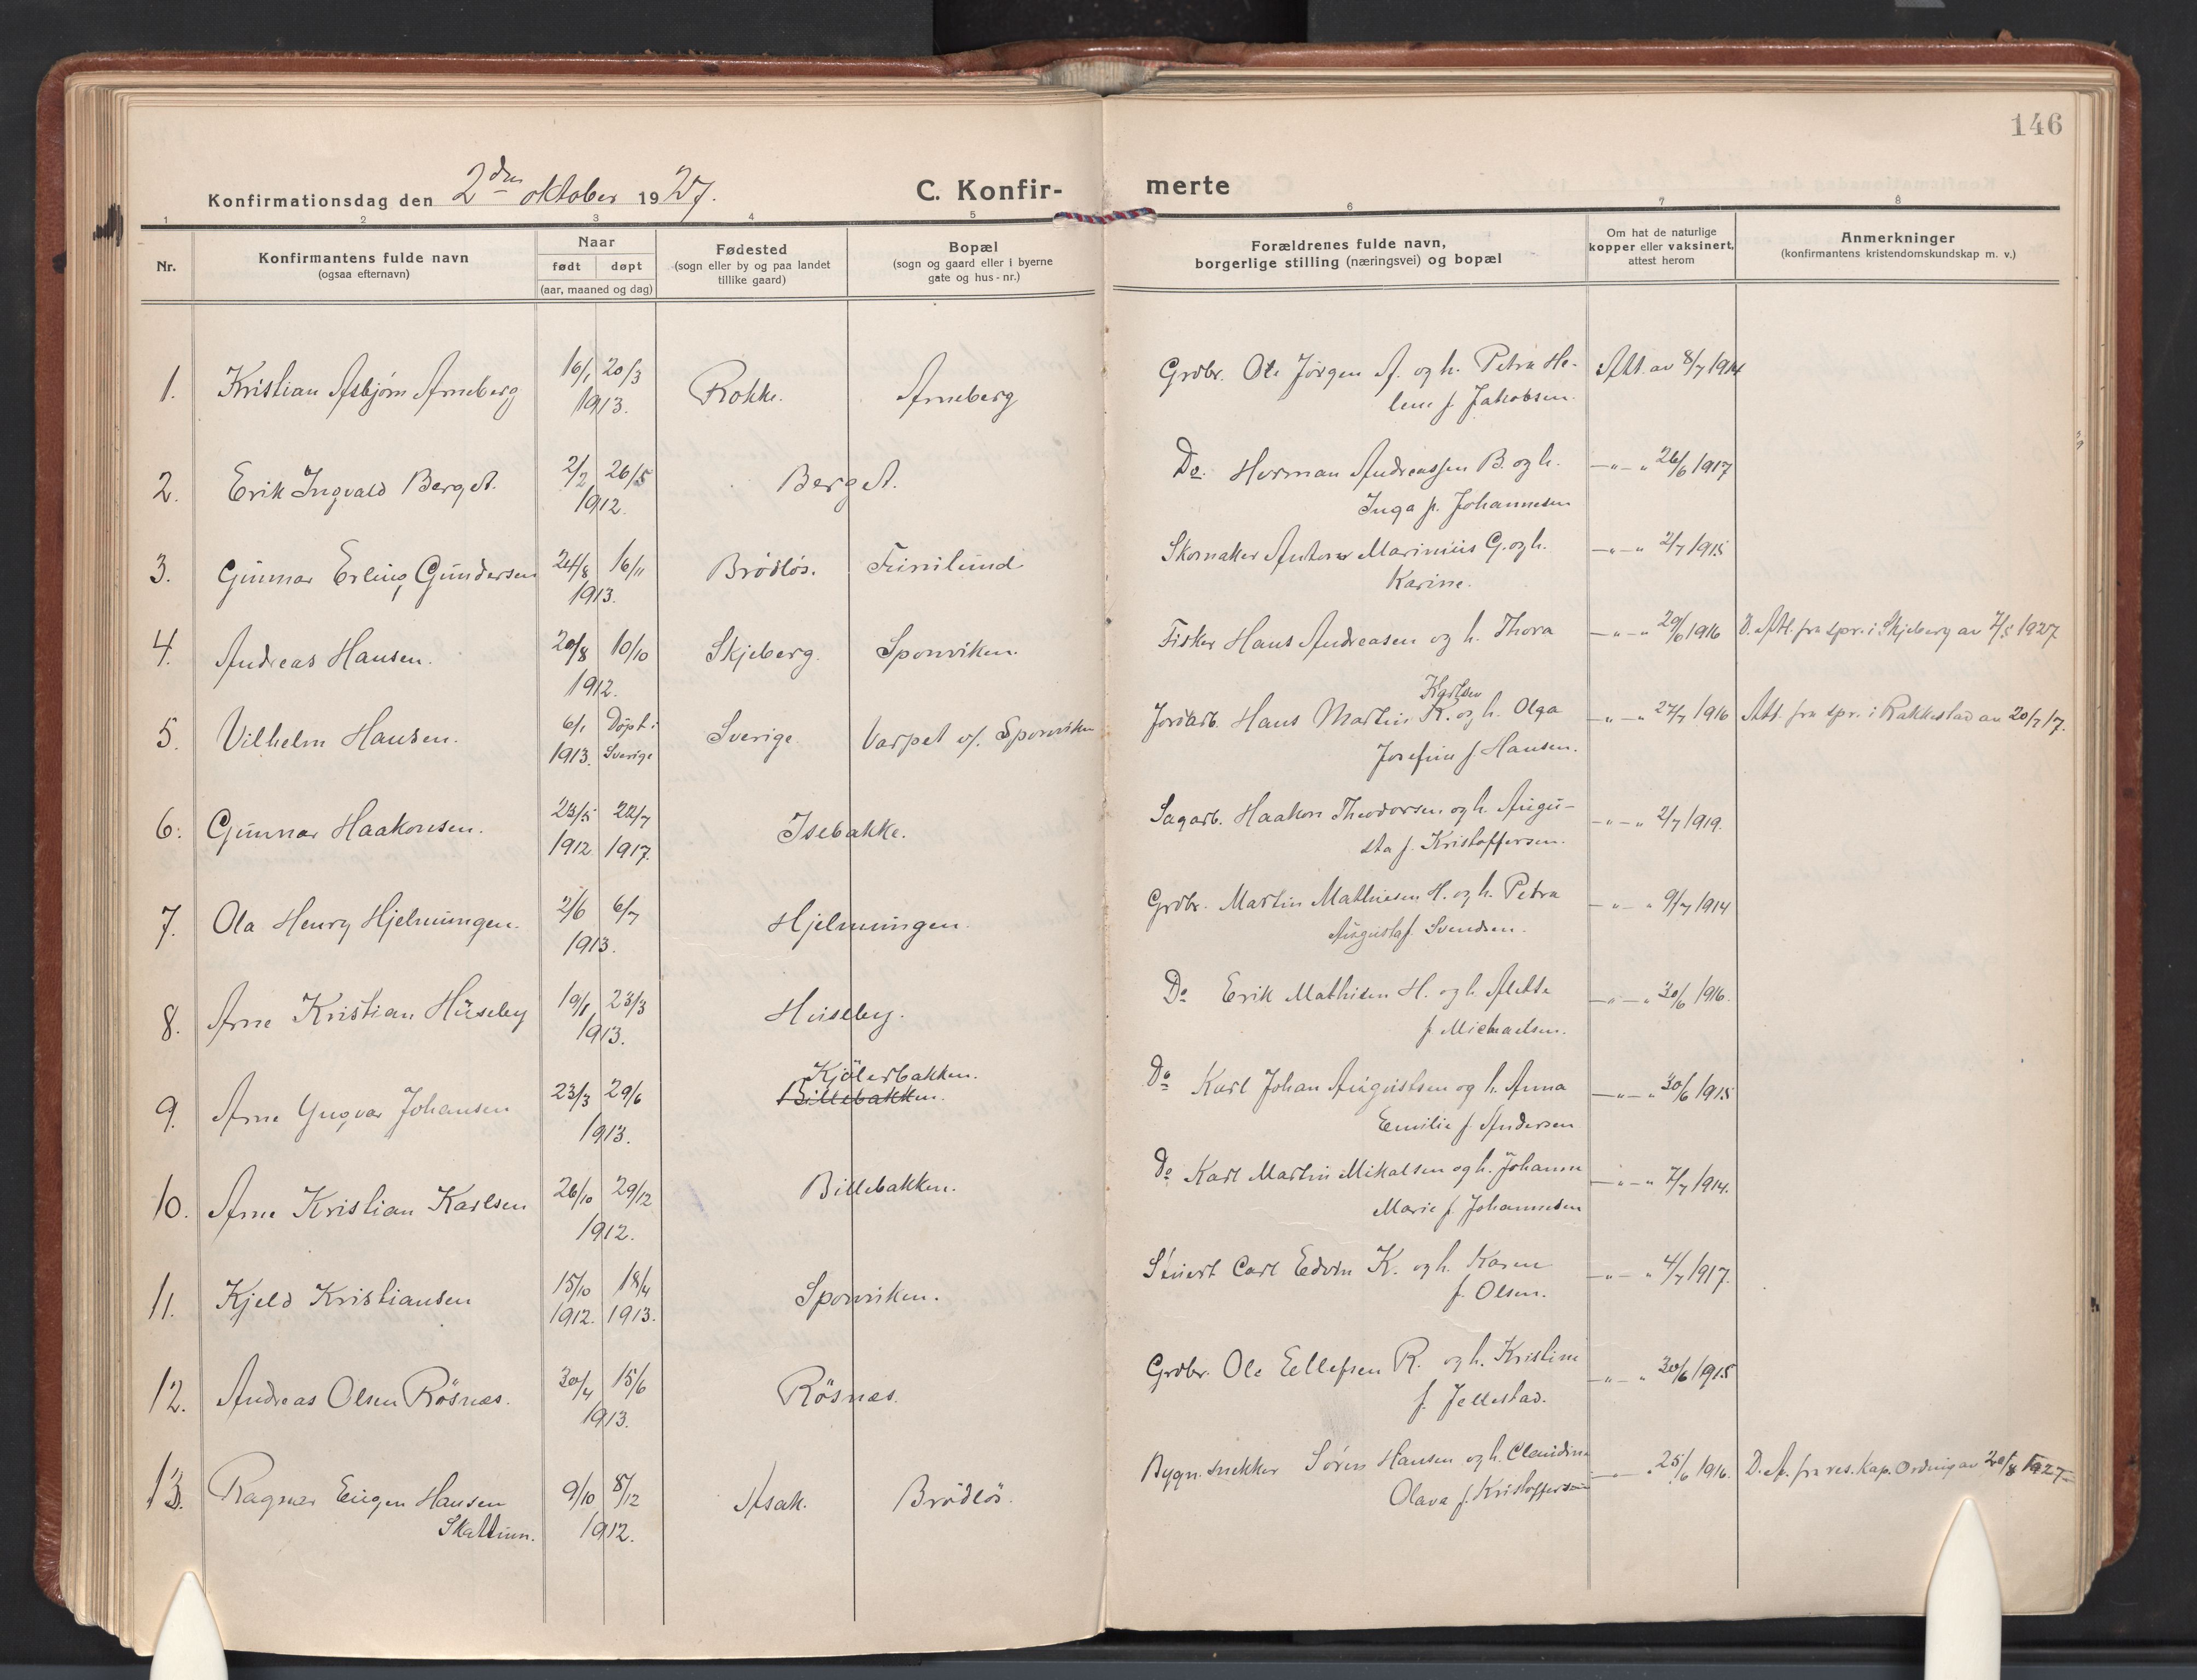 146
Konfirmationsdag den 2den oktober 1927.
C. Konfir- merte
1 2 3 4 5 6 7 8
Nr.
Konfirmantens fulde navn
(ogsaa efternavn)
Naar
født døpt
(aar, maaned og dag)
Fødested
(sogn eller by og paa landet
tillike gaard)
Bopæl
(sogn og gaard eller i byerne
gate og hus - nr.)
Forældrenes fulde navn,
borgerlige stilling (næringsvei) og bopæl
Om hat de naturlige
kopper eller vaksinert,
attest herom
Anmerkninger
(konfirmantens kristendomskundskap m. v.)
1. Kristian Asbjørn Arneberg 16/1 20/3 1913. Rokke. Arneberg Grdbr. Ole Jörgen A. og h. Petra He- Att. av 8/7 1914
lene f. Jakobsen.
2. Erik Ingvald Berget. 2/2 26/5 1912. Berget. Do. Herman Andreassen B. og h. —„—„ 26/6 1917
Inga f. Johannesen
3. Gunnar Erling Gundersen 24/8 16/11 1913. Brödlös. Furulund Skomaker Anton Marinius G. og h. —„—„ 2/7 1915
Karine.
4. Andreas Hansen. 20/8 10/10 1912. Skjeberg. Sponviken. Fisker Hans Andreasen og h. Thora —„—„ 29/6 1916 D. Att. fra spr. i Skjeberg av 7/5 1927
Karlsen
5. Vilhelm Hansen. 6/1 1913. Döpt i Sverige Sverige. Varpet v/. Sponviken Jordarb. Hans Martin K. og h. Olga —„—„ 27/7 1916 Att. fra spr. i Rakkestad av 20/7 17.
Josefine f. Hansen.
6. Gunnar Haakonsen. 23/5 1912 22/7 1917. Isebakke. Sagarb. Haakon Theodorsen og h. Augu- —„—„ 2/7 1919.
sta f. Kristoffersen.
7. Ola Henry Hjelmungen. 2/6 6/7 1913. Hjelmungen. Grdbr. Martin Mathiesen H. og h. Petra —„—„ 9/7 1914
Augusta f. Svendsen.
8. Arne Kristian Huseby 19/1 23/3 1913. Huseby. Do Erik Mathisen H. og h. Alette —„—„ 30/6 1916.
f. Michaelsen.
Kjölerbakken.
9. Arne Yngvar Johansen 23/3 29/6 1913. Billebakken. Do Karl Johan Augustsen og h. Anna —„—„ 30/6 1915
Emilie f. Andersen
10. Arne Kristian Karlsen 26/10 29/12 1912. Billebakken. Do Karl Martin Mikalsen og h. Johanne —„—„ 7/7 1914.
Marie f. Johannesen
11. Kjeld Kristiansen 15/10 1912. 18/4 1913. Sponviken. Stuert Carl Edvin K. og h. Karen —„—„ 4/7 1917.
f. Olsen.
12. Andreas Olsen Rösnæs. 30/4 15/6 1913. Rösnæs. Grdbr. Ole Eellefsen R. og h. Kristine —„—„ 30/6 1915
f. Jellestad.
13. Ragnar Eugen Hansen 9/10 8/12 1912. Asak. Brödlös. Bygn. snekker Sören Hansen og h. Claudine —„—„ 25/6 1916. D. A. fra res. kap. Ording av 20/8 1927
Skattum. Olava f. Kristoffersen